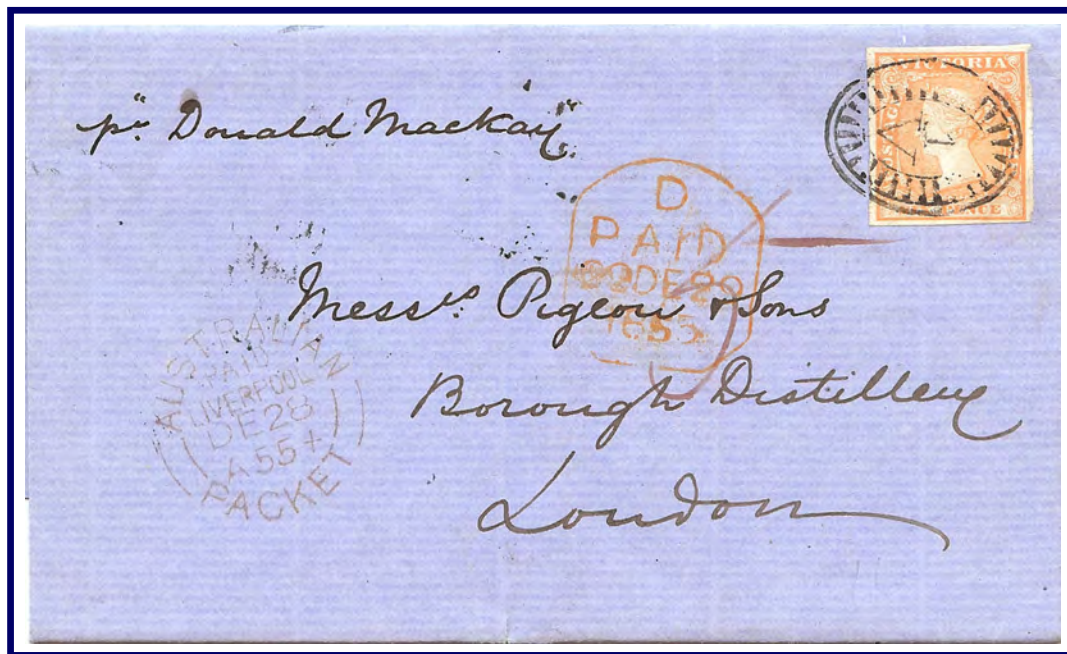 VICTORIA
POSTAGE
PENCE
pr "Donald Mackay"
D
PAID
DE 29
1855
Messrs. Pigeon & Sons
Borough Distillery
London
AUSTRALIAN
PAID
LIVERPOOL
DE 28
A 55 +
PACKET